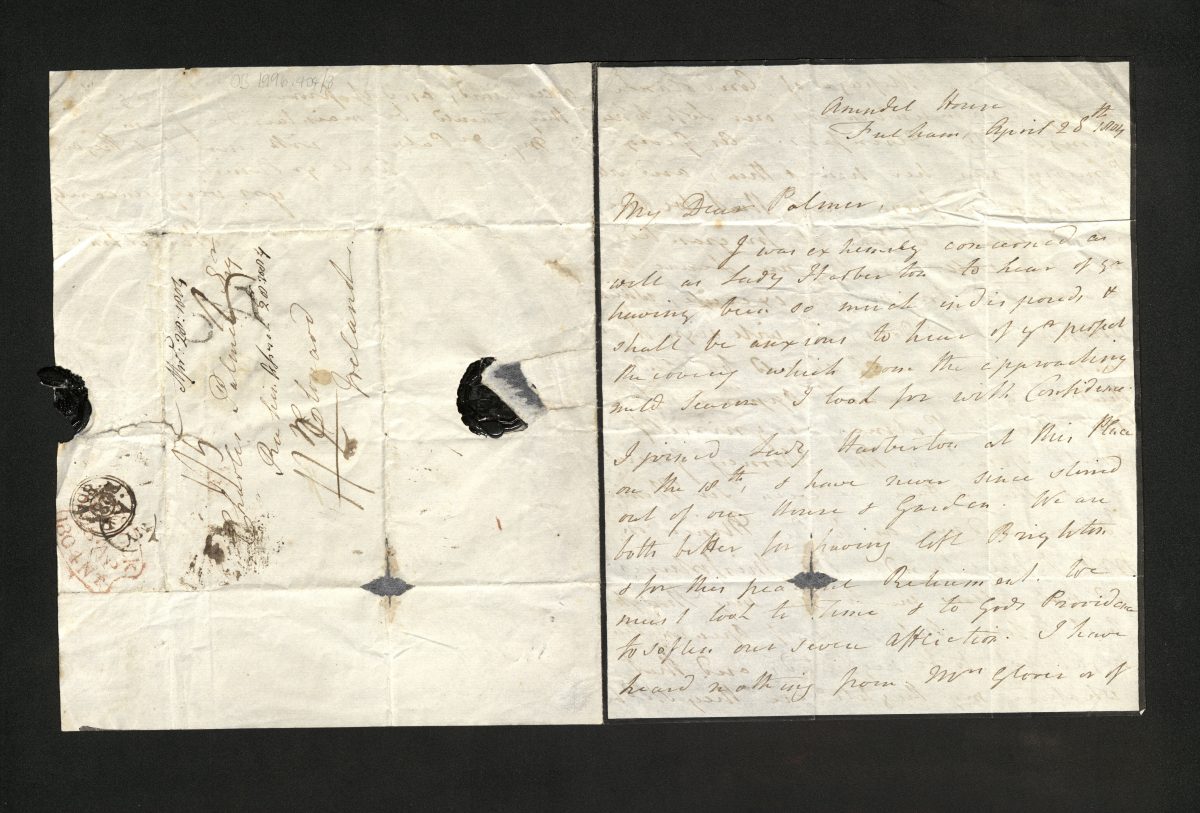 OB 1996.404/8
Apr. 20. 1804
Charles Palmer Esqr
Rushin April 20 1804
Ireland
Arundel House
Fulham, April 28th 1804
My Dear Palmer,
I was extremely concerned as
well as Lady Harberton to hear of yr
having been so much indisposed &
shall be anxious to hear of yr perfect
recovery which from the approaching
mild season I look for with Confidence.
I joined Lady Harberton at this Place
on the 18th, & have never since stirred
out of our House & Garden. We are
both better for having left Brighton
& for this Retirement. We
must look to Time & to Gods Providence
to soften our severe affliction. I have
heard nothing from Mrs Glover or of